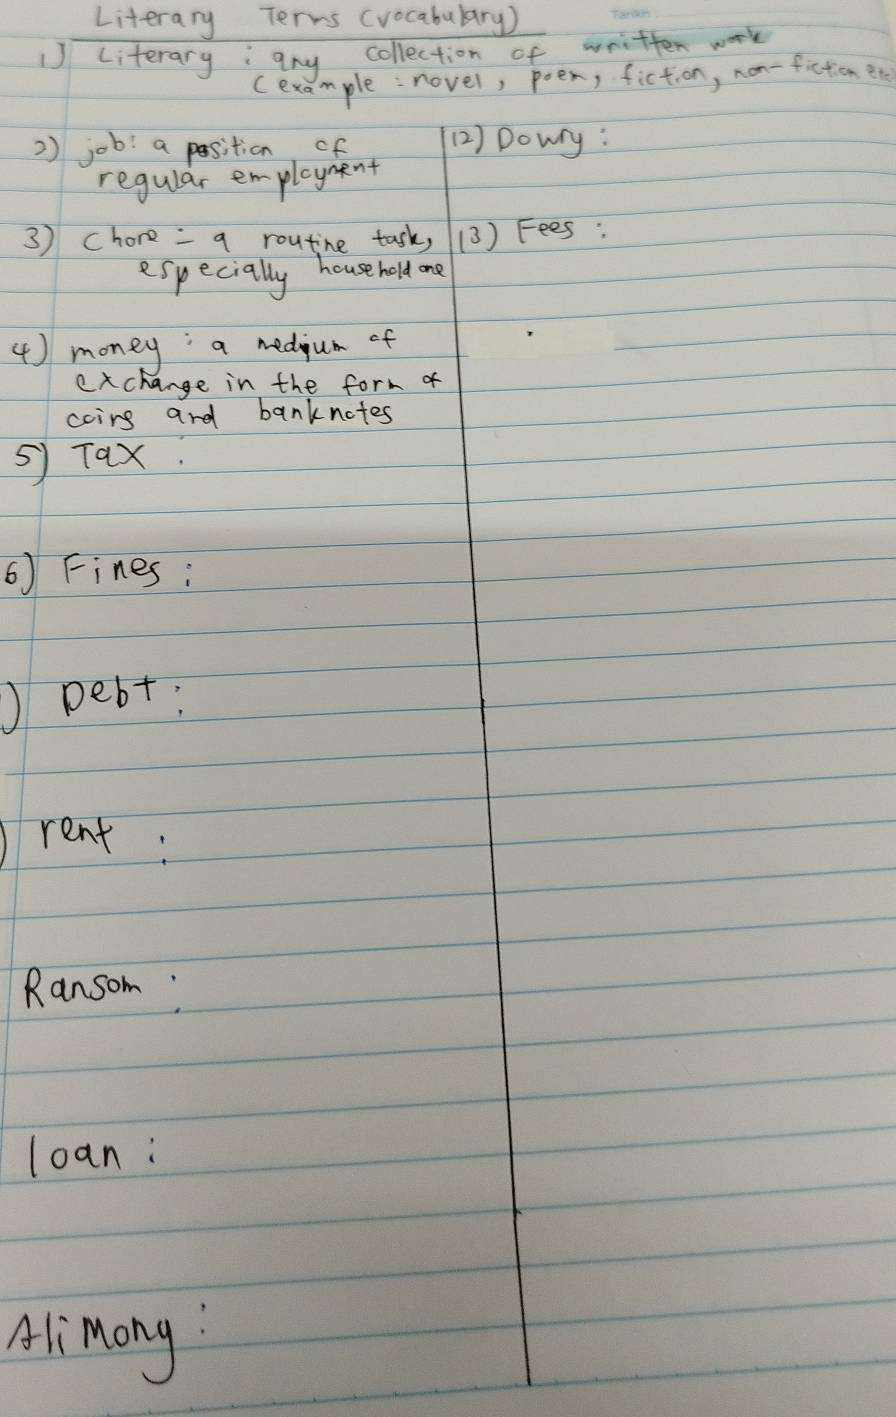 Tarikh
Literary Terms (vocabulary)
1) Literary : any collection of written work
(example : novel, poem, fiction, non-fiction etc
2) job: a position of
regular employment
3) Chore = a routine task,
especially household one
4) money : a medium of
exchange in the form of
coins and banknotes
5) Tax :
6) Fines :
) Debt :
) rent :
Ransom :
loan :
Alimony :
12) Dowry :
13) Fees :